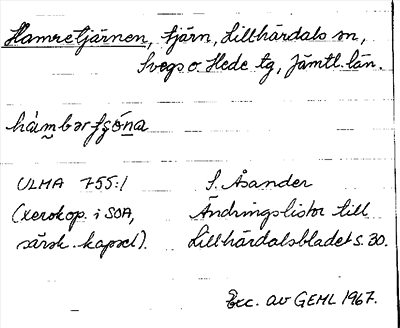 Hamretjärnen, tjärn, Lillhärdals sn,
Svegs o. Hede tg, Jämtl. län.
ULMA 755:1
(xerokop. i SOA,
särsk. kapsel).
S. Åsander
Ändringslistor till
Lillhärdalsbladet s. 30.
Exc. av GEHL 1967.